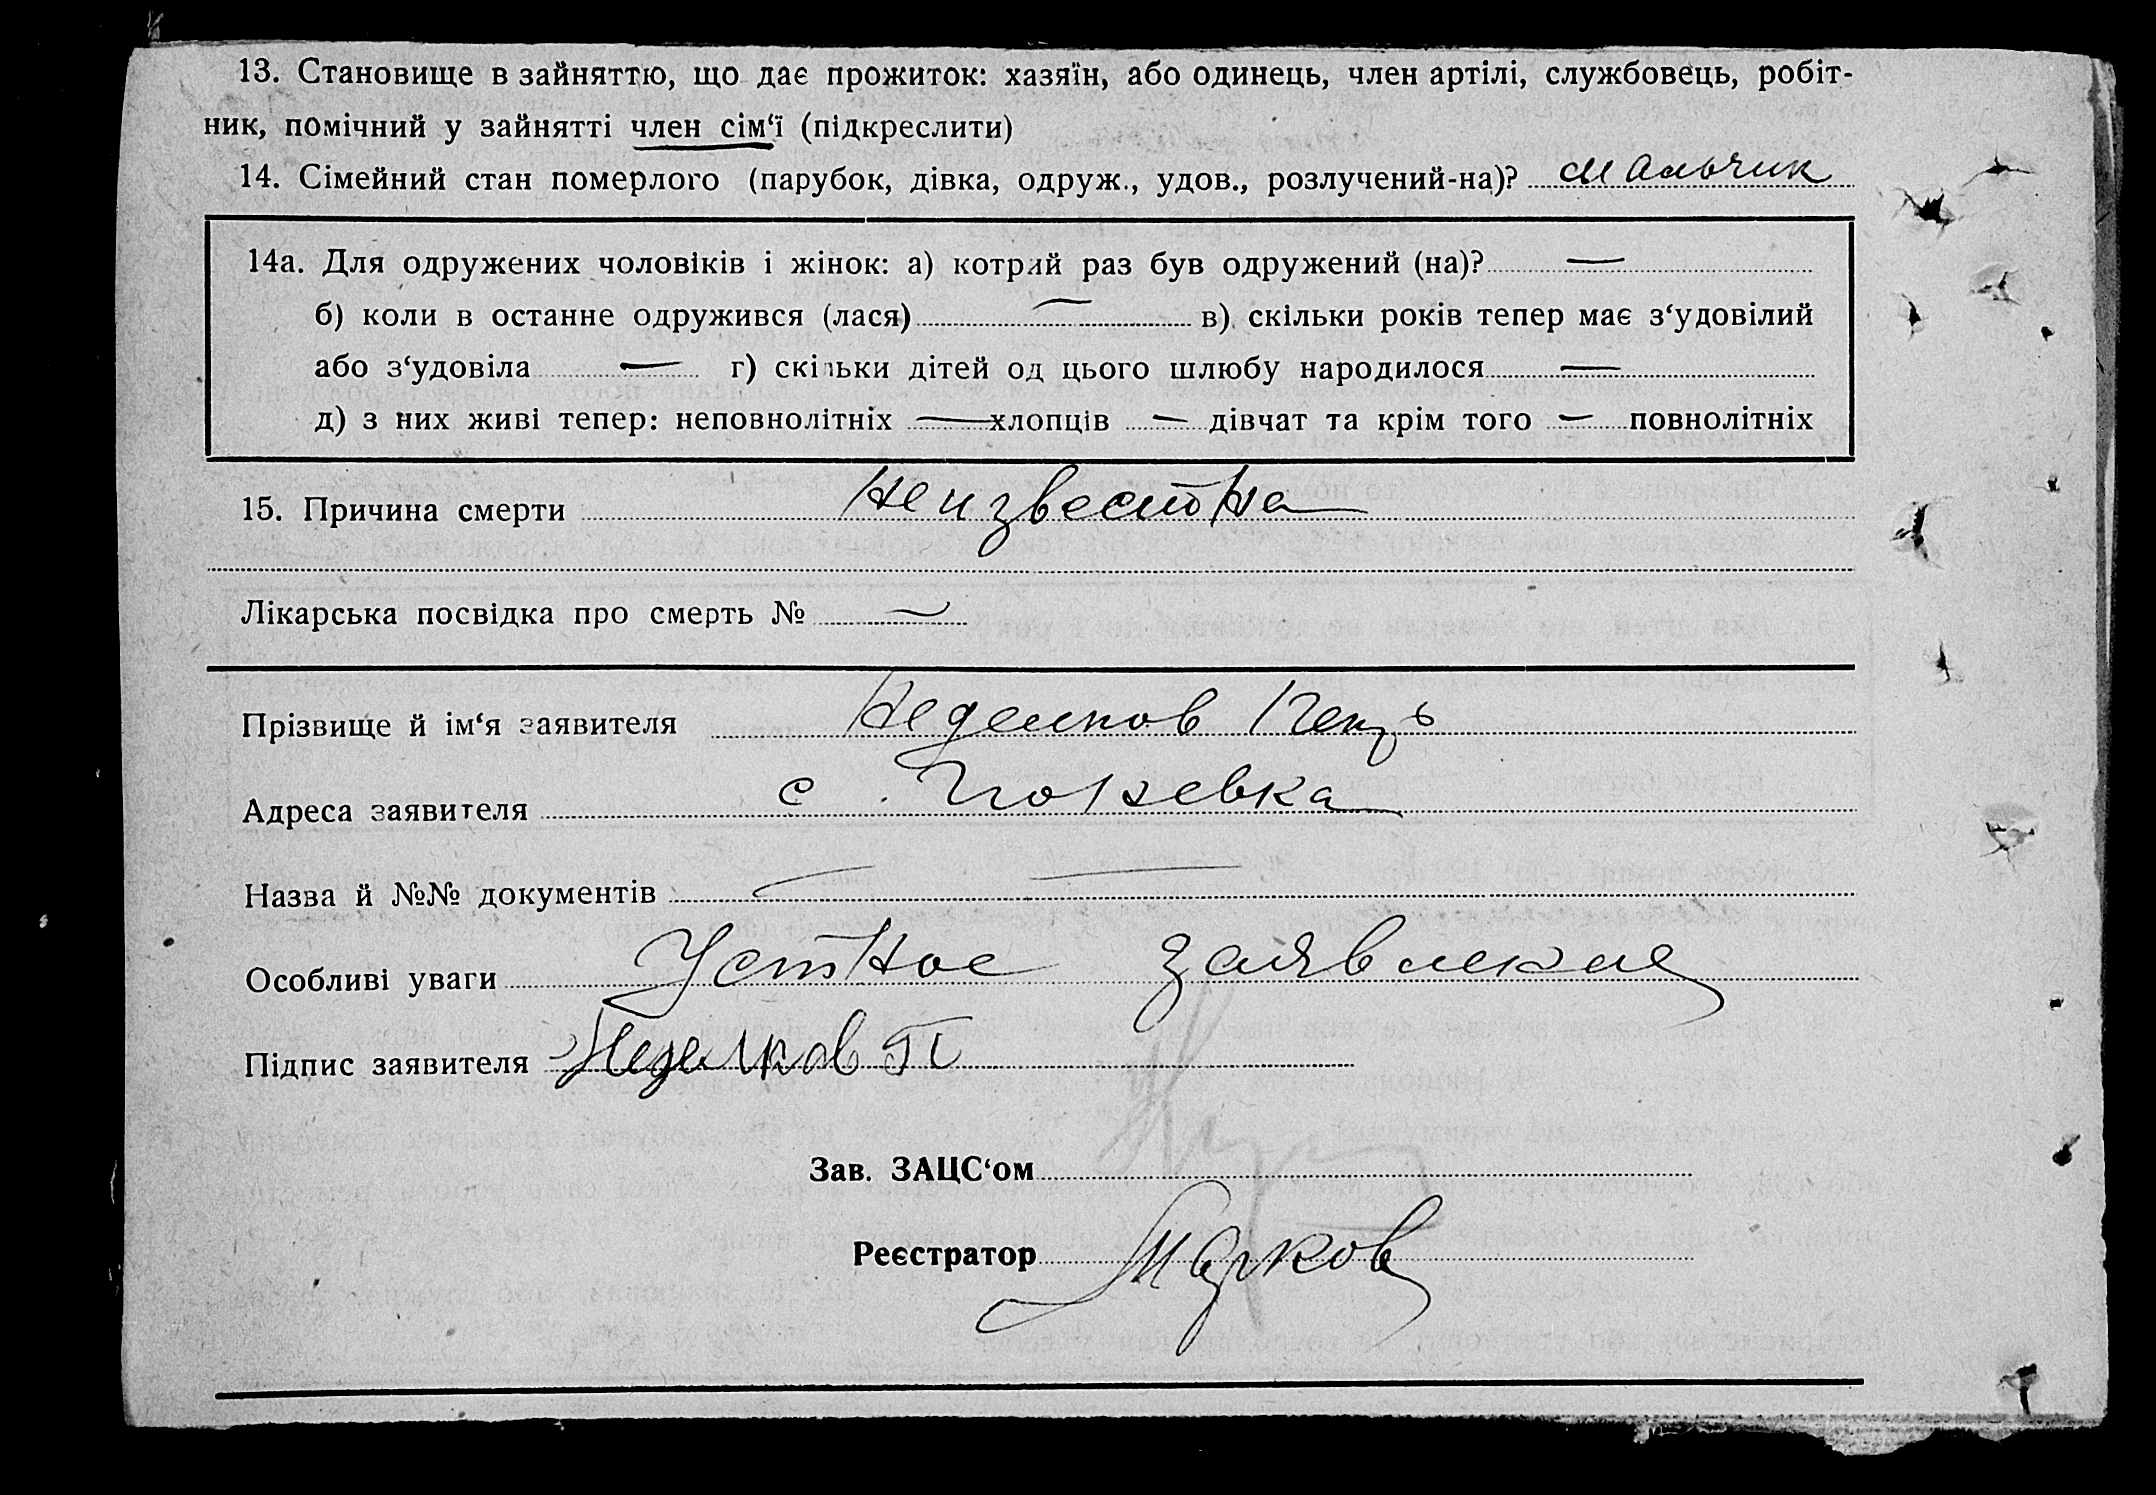 13. Становище в зайняттю, що дає прожиток: хазяїн, або одинець, член артілі, службовець, робіт-
ник, помічний у зайнятті член сім‘ї (підкреслити)
14. Сімейний стан померлого (парубок, дівка, одруж., удов., розлучений-на)? мальчик
14а. Для одружених чоловіків і жінок: а) котрий раз був одружений (на)? —
б) коли в останне одружився (лася) — в) скільки років тепер має з‘удовілий
або з‘удовіла — г) скільки дітей од цього шлюбу народилося —
д) з них живі тепер: неповнолітніх — хлопців — дівчат та крім того — повнолітніх
15. Причина смерти неизвестна
Лікарська посвідка про смерть № —
Прізвище й ім‘я заявителя Неделков
Адреса заявителя с.
Назва й №№ документів — —
Особливі уваги Устное заявление
Підпис заявителя Неделков П
Зав. ЗАЦС‘ом
Реєстратор Марков